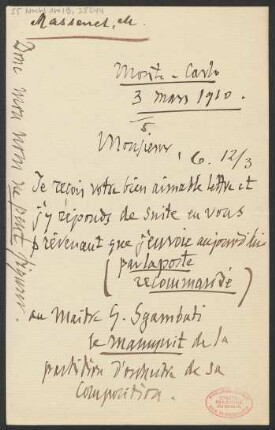 Massenet, M.
Monte-Carlo
3 mars 1910.
5
Monsieur,
6. 12/3
Je reçois votre bien aimable lettre et
j'y réponds de suite en vous
prévenant que j'envoie aujourd'hui
(par la poste
recommandé)
au Maître G. Sgambati
le manuscrit de la
partition d'orchestre de sa
Composition.
Donc mon nom ne peut figurer.